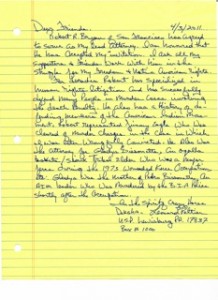 Dear Friends 9/3/2011
Robert R. Bryan of San Francisco has agreed
to serve as my lead attorney. I am honored that
he has accepted my invitation. I ask all my
supporters & friends work with him in the
struggle for my freedom & Native American Rights.
For decades Robert has specialized in
human rights litigation and has successfully
defended many people in murder cases involving
the death penalty. He also has a history of
defending members of the American Indian
Movement. Robert represented Jimmy Eagle who was
cleared of murder charges in the case in which
I was later wrongfully convicted. He also was
the attorney for Gladys Bissonette, an Oglala
Lakota Tribal Elder who was a
during the 1973 Wounded Knee Occupation.
Gladys was the mother of Pedro Bissonette, an
AIM leader who was murdered by the B.I.A Police
shortly after the occupation.
In the Spirit of Crazy Horse
Doksha
Leonard Peltier
USP Lewisburg PA 17837
Box 1000